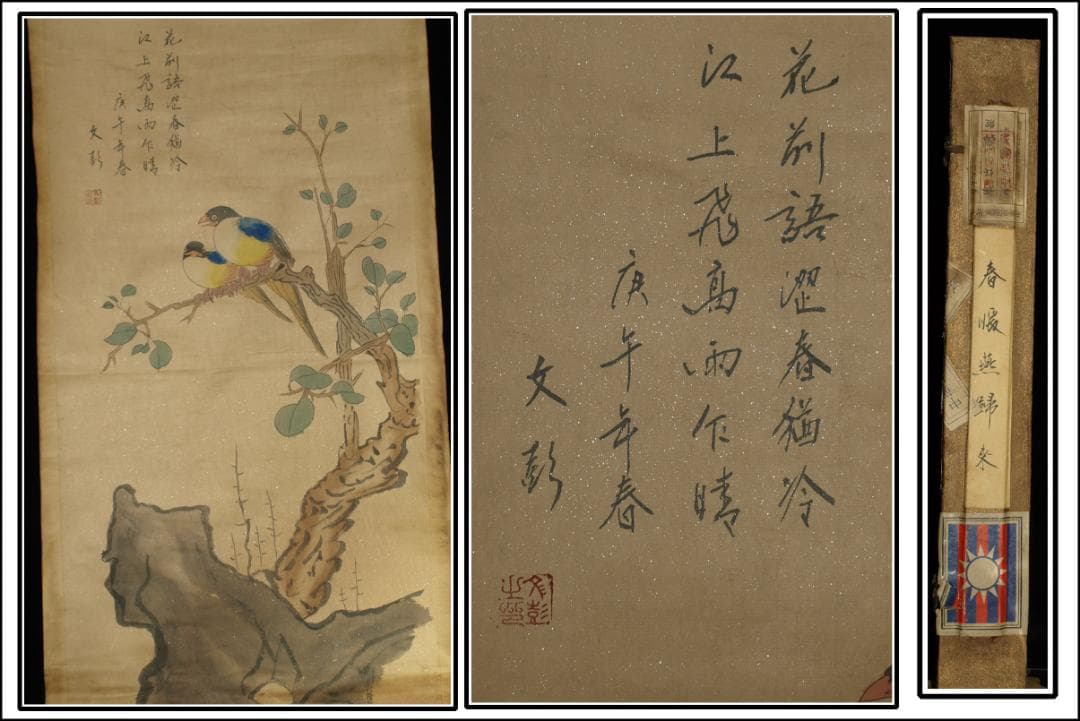 花前語澀春猶冷
江上飛高雨乍晴
庚午年春
文彭
花前語澀春猶冷
江上飛高雨乍晴
庚午年春
文彭
文彭
之印
春暖燕歸來